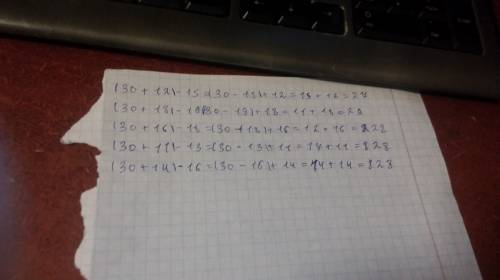 (30 + 12) - 15 = (30 - 15) + 12 = 15 + 12 = 27
(30 + 18) - 19 (30 - 19) + 18 = 11 + 18 = 29
(30 + 16) - 18 = (30 + 18) + 16 = 12 + 16 = 28
(30 + 11) - 13 = (30 - 13) + 11 = 17 + 11 = 28
(30 + 14) - 16 = (30 - 16) + 14 = 14 + 14 = 28